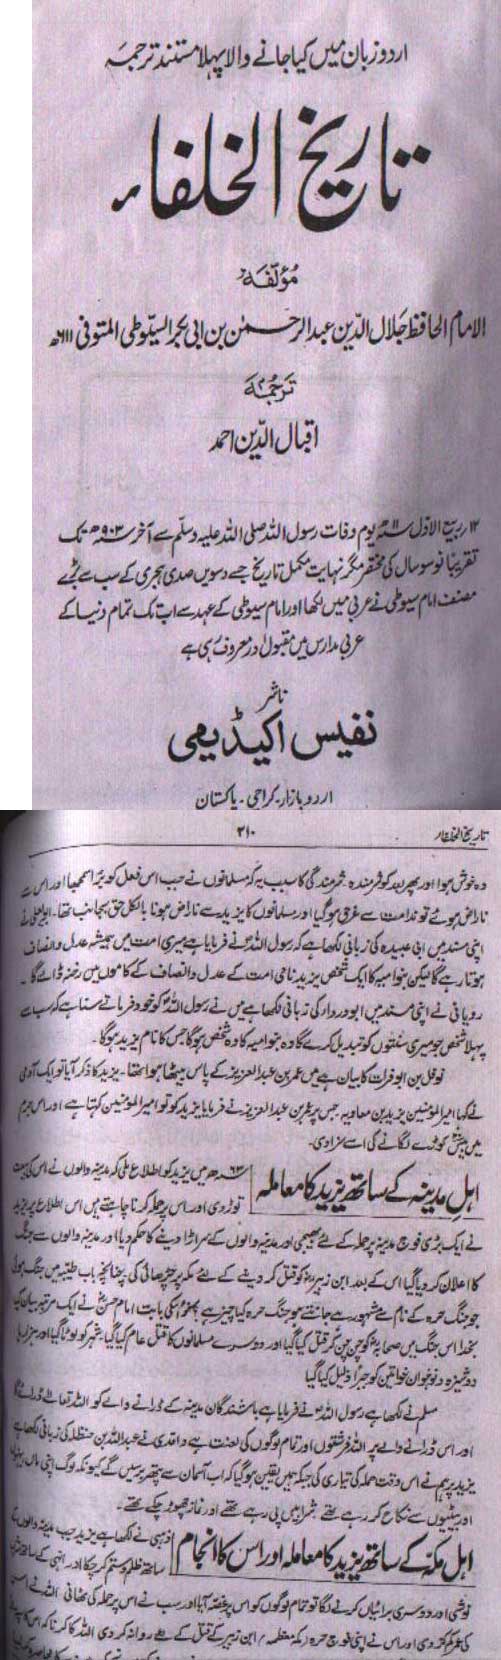 اردو زبان میں کیا جانے والا پہلا مستند ترجمہ
تاریخ الخلفاء
مؤلفہ
الامام الحافظ جلال الدین عبدالرحمٰن بن ابی بکر السیوطی المتوفی ۹۱۱ھ
ترجمہ
اقبال الدین احمد
۱۲ ربیع الاول سنہ ۱۱ھ یوم وفات رسول اللہ صلی اللہ علیہ وسلم سے آخر سنہ ۹۰۳ھ تک
تقریباً نو سو سال کی مختصر مگر نہایت مکمل تاریخ جسے دسویں صدی ہجری کے سب سے بڑے
مصنف امام سیوطی نے عربی میں لکھا اور امام سیوطی کے عہد سے اب تک تمام دنیا کے
عربی مدارس میں مقبول اور معروف رہی ہے
ناشر
نفیس اکیڈیمی
اردو بازار۔ کراچی۔ پاکستان
تاریخ الخلفاء ۲۱۰
وہ خوش ہوا اور پھر بعد کو شرمندہ۔ شرمندگی کا سبب یہ کہ مسلمانوں نے جب اس فعل کو برا سمجھا اور اس سے
ناراض ہوئے تو ندامت سے غرق ہو گیا اور مسلمانوں کا یزید سے ناراض ہونا بالکل حق بجانب تھا۔ ابویعلی نے
اپنی مسند میں ابی عبیدہ کی زبانی لکھا ہے کہ رسول اللہ نے فرمایا ہے میری امت میں ہمیشہ عدل و انصاف
ہوتا رہے گا لیکن بنو امیہ کا ایک شخص یزید نامی امت کے عدل و انصاف کے کاموں میں رخنہ ڈالے گا۔
رویانی نے اپنی مسند میں ابو دردا کی زبانی لکھا ہے میں نے رسول اللہ کو خود فرماتے سنا ہے کہ سب سے
پہلا شخص جو میری سنتوں کو تبدیل کرے گا وہ بنو امیہ کا وہ شخص ہوگا جس کا نام یزید ہوگا۔
نوفل بن ابو فرات کا بیان ہے میں عمر بن عبدالعزیز کے پاس بیٹھا ہوا تھا۔ یزید کا ذکر آیا تو ایک آدمی
نے کہا امیرالمومنین یزید بن معاویہ جس پر عمر بن عبدالعزیز نے فرمایا یزید کو تو امیرالمومنین کہتا ہے اور اس جرم
میں بیس کوڑے لگانے کی اسے سزا دی۔
اہل مدینہ کے ساتھ یزید کا معاملہ
سنہ ۶۳ھ میں یزید کو اطلاع ملی کہ مدینہ والوں نے اس کی بیعت
توڑ دی اور اس پر حملہ کرنا چاہتے ہیں اس اطلاع پر یزید
نے ایک بڑی فوج مدینہ پر حملہ کے لئے بھیجی اور مدینہ والوں کے سر اڑا دینے کا حکم دیا اور مدینہ والوں سے جنگ
کا اعلان کر دیا گیا اس کے بعد ابن زبیر کو قتل کر دینے کے لئے مکہ پر چڑھائی کی چنانچہ باب طیبہ میں جنگ ہوئی
جو جنگ حرہ کے نام سے مشہور ہے جانتے ہو جنگ حرہ کیا چیز ہے اسکی بابت امام حسن نے ایک مرتبہ بیان کیا
بخدا اس جنگ میں صحابہ کو چن چن کر قتل کیا گیا اور دوسرے مسلمانوں کا قتل عام کیا گیا شہر کو لوٹا گیا اور ہزارہا
دوشیزہ و نوجوان خواتین کو جبراً ذلیل کیا گیا
مسلم نے لکھا ہے رسول اللہ نے فرمایا ہے باشندگان مدینہ کے ڈرانے والے کو اللہ تعالے ڈرائے گا
اور اس ڈرانے والے پر اللہ فرشتوں اور تمام لوگوں کی لعنت ہے واقدی نے عبداللہ بن حنظلہ کی زبانی لکھا ہے
یزید پر ہم نے اس وقت حملہ کی تیاری کی جبکہ ہمیں یقین ہو گیا کہ اب آسمان سے پتھر برسیں گے کیونکہ لوگ اپنی ماں بہنوں
اور بیٹیوں سے نکاح کر رہے تھے شرابیں پی رہے تھے اور نماز چھوڑ چکے تھے۔
اہل مکہ کے ساتھ یزید کا معاملہ اور اس کا انجام
ذہبی نے لکھا ہے یزید جب مدینہ والوں کے
ساتھ ظلم و ستم کر چکا اور انہی کے ساتھ
نوشی اور دوسری برائیاں کرنے لگا تو تمام لوگوں کو اس پر غصہ آیا اور سب نے اس پر حملہ کی ٹھانی اللہ نے اس
کی عمر کم کر دی اور اس نے اپنی فوج حرہ مکہ معظمہ ابن زبیر کے قتل کے لئے روانہ کر دی اللہ کا کرنا کہ